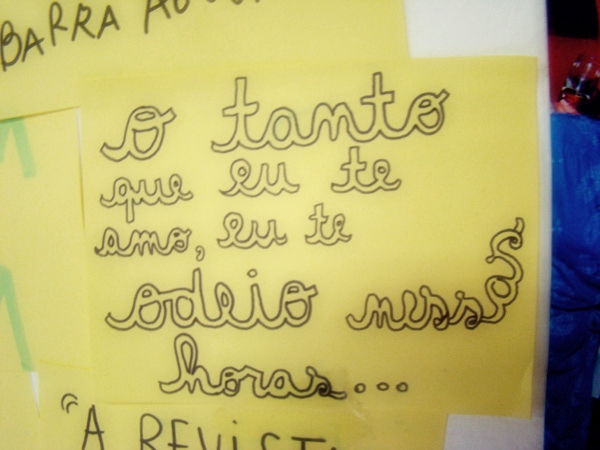 BARRA
O tanto
que eu te
amo, eu te
odeio nessas
horas...
"A REVIST